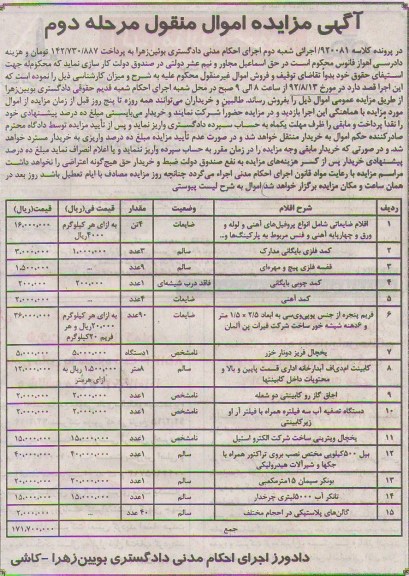 آگهی مزایده اموال منقول مرحله دوم
در پرونده کلاسه ۹۲۰۰۸۱/ اجرائی شعبه دوم اجرای احکام مدنی دادگستری بوئین‌زهرا به پرداخت ۱۴۲/۷۳۰/۸۸۷ تومان و هزینه
دادرسی اهواز فانوس محکوم است در حق اسماعیل مجاور و نیم عشر دولتی در صندوق دولت کار سازی نماید که محکوم‌له جهت
استیفای حقوق خود بدوا تقاضای توقیف و فروش اموال غیرمنقول محکوم علیه به شرح و میزان کارشناسی ذیل را نموده است که
این اجرا قصد دارد در مورخ ۹۲/۸/۱۳ از ساعت ۸ الی ۹ صبح در محل شعبه اجرای احکام شعبه قدیم حقوقی دادگستری بوئین‌زهرا
از طریق مزایده عمومی اموال ذیل را بفروش رساند. طالبین و خریداران می‌توانند همه روزه تا پنج روز قبل از زمان مزایده از اموال
مورد مزایده با هماهنگی این اجرا بازدید و در مزایده حضور/ شرکت نمایند و خریدار می‌بایستی مبلغ ده درصد پیشنهادی خود
را نقدا پرداخت و مابقی را ظرف مهلت یکماه به حساب سپرده دادگستری واریز نماید و پس از تأیید مزایده توسط دادگاه محترم
صادرکننده حکم اموال به خریدار منتقل خواهد شد و در صورت عدم تأیید مزایده مبلغ ده درصد واریزی به خریدار مسترد خواهد
شد. و در صورتی که خریدار مابقی وجه مزایده را در زمان مقرر به حساب سپرده واریز ننماید و یا اعلام انصراف نماید مبلغ ده درصد
پیشنهادی خریدار پس از کسر هزینه‌های مزایده به نفع صندوق دولت ضبط و خریدار حق هیچ‌گونه اعتراضی را نخواهد داشت
مراسم مزایده با رعایت مواد قانون اجرای احکام مدنی اجراء می‌گردد چنانچه روز مزایده مصادف با ایام تعطیل باشد روز بعد در
همان ساعت و مکان مزایده برگزار خواهد شد/ اموال به شرح لیست پیوستی
ردیف شرح اقلام وضعیت مقدار قیمت فی(ریال) قیمت(ریال)
۱ اقلام ضایعاتی شامل انواع پروفیل‌های آهنی و لوله و ضایعات ۴تن به ازای هر کیلوگرم ۱۶،۰۰۰،۰۰۰
ورق و چهارپایه آهنی و فنس مربوط به پارکینگ‌ها و... ۴۰۰۰ریال
۲ کمد فلزی بایگانی مدارک سالم ۳عدد ۱،۰۰۰،۰۰۰ ۳،۰۰۰،۰۰۰
۳ قفسه فلزی پیچ و مهره‌ای سالم ۹عدد ... ۱،۵۰۰،۰۰۰
۴ کمد چوبی بایگانی فاقد درب شیشه‌ای ۱عدد ۲۰۰،۰۰۰ ۲۰۰،۰۰۰
۵ کمد آهنی ضایعات ۴عدد ... ۲،۰۰۰،۰۰۰
۶ فریم پنجره از جنس یوپی‌وی‌سی به ابعاد ۲/۵ × ۱/۵ متر ضایعات ۹۰عدد به ازای هر کیلوگرم ۳۶،۰۰۰،۰۰۰
و ۶دهنه شیشه خور ساخت شرکت فیرات پن آلمان ۲۰،۰۰۰ریال و هر
فریم ۲۰کیلوگرم
۷ یخچال فریز دونار خزر نامشخص ۱دستگاه ۵،۰۰۰،۰۰۰ ۵،۰۰۰،۰۰۰
۸ کابینت ام‌دی‌اف آبدارخانه اداری قسمت پایین و بالا و سالم ۸متر ۱،۵۰۰،۰۰۰ ریال به ۱۲،۰۰۰،۰۰۰
محتویات داخل کابینتها ازای هرمتر
۹ اجاق گاز رو کابینتی دو شعله نامشخص ۱عدد ۲،۰۰۰،۰۰۰ ۲،۰۰۰،۰۰۰
۱۰ دستگاه تصفیه آب سه فیلتره همراه با فیلتر آر او نامشخص ۱عدد ۲،۰۰۰،۰۰۰ ۲،۰۰۰،۰۰۰
زیرکابینتی
۱۱ یخچال ویترینی ساخت شرکت الکترو استیل نامشخص ۱عدد ۱۵،۰۰۰،۰۰۰ ۱۵،۰۰۰،۰۰۰
۱۲ بیل ۵۰۰کیلویی مختص نصب بروی تراکتور همراه با سالم ۱عدد ۴۰،۰۰۰،۰۰۰ ۴۰،۰۰۰،۰۰۰
جکها و شیرآلات هیدرولیکی
۱۳ بونکر سیمان ۱۵مترمکعبی سالم ۱عدد ۲۰،۰۰۰،۰۰۰ ۲۰،۰۰۰،۰۰۰
۱۴ تانکر آب ۵۰۰۰لیتری چرخدار سالم ۱عدد ۱۵،۰۰۰،۰۰۰ ۱۵،۰۰۰،۰۰۰
۱۵ گالن‌های پلاستیکی در احجام مختلف سالم ۴۰ عدد ... ۲،۰۰۰،۰۰۰
جمع ۱۷۱،۷۰۰،۰۰۰
دادورز اجرای احکام مدنی دادگستری بویین‌زهرا -کاشی